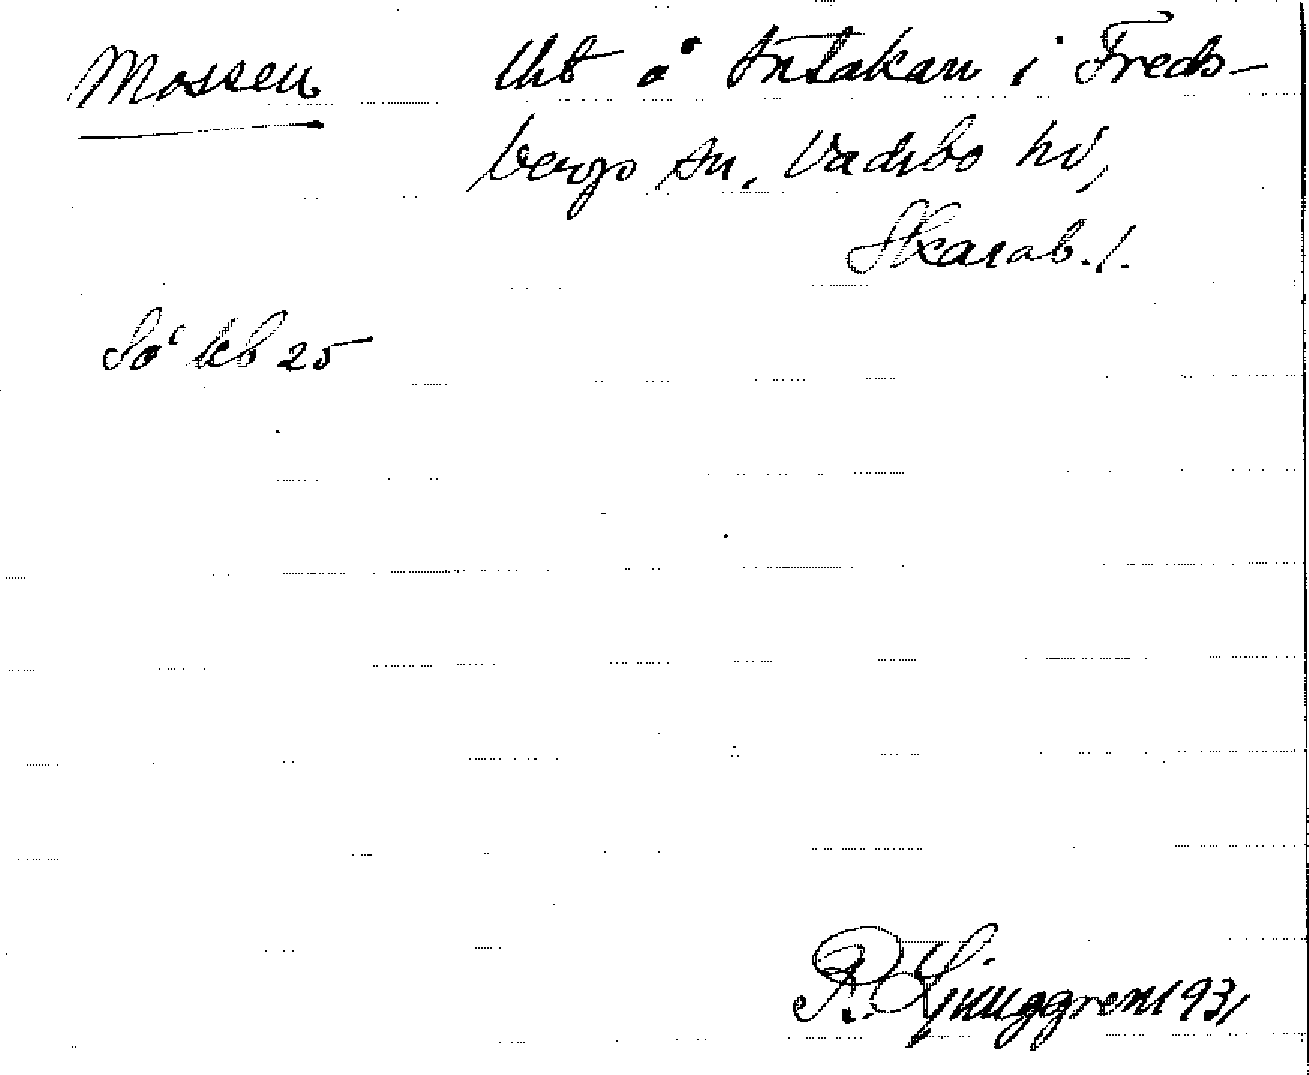 Mossen
Uhb å Intakan i Freds-
bergs sn, Vadsbo hd,
Skarab. l.
Så kb 25
R. Ljunggren 1931